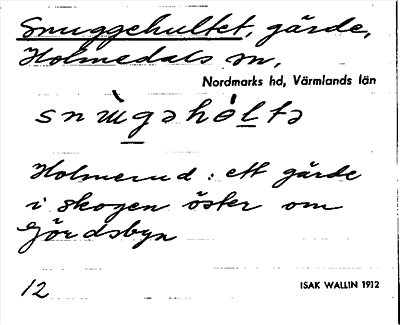 Snuggehultet, gärde,
Holmedals sn,
Nordmarks hd, Värmlands län
Holmerud : ett gärde
i skogen öster om
Gördsbyn
12
ISAK WALLIN 1912